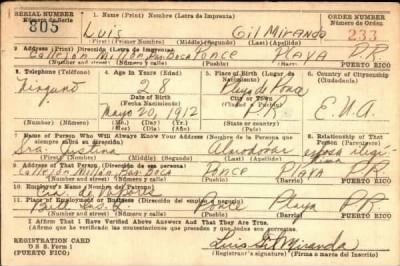 SERIAL NUMBER
Número de Serie
1. Name (Print) Nombre (Letra de Imprenta)
ORDER NUMBER
Número de Orden
805
Luis Gil Miranda
233
(First) (Primer Nombre) (Middle) (Segundo) (Last) (Apellido)
2 Address (Print) Dirección (Letra de Imprenta)
Callejon Millan Ponce Playa P.R.
(Number and street) (Número y calle) (Town) (Pueblo) (Barrio) PUERTO RICO
3. Telephone (Teléfono)
4. Age in Years (Edad)
5. Place of Birth (Lugar de Nacimiento)
6. Country of Citizenship (Ciudadanía)
Ninguno
28
Playa de Ponce
Date of Birth
(Fecha Nacimiento)
(Town or country)
(Ciudad o País)
Mayo 20, 1912
P.R.
E.U.A.
(Number) (Número)
(Mo.) (Day) (Yr.)
(Mes) (Día) (Año)
7 Name of Person Who Will Always Know Your Address (Nombre de Persona que siempre sabrá su dirección)
8. Relationship of That Person (Parentesco)
Sra. Justina Almodovar esposa
(First) (Primer Nombre) (Middle) (Segundo) (Last) (Apellido)
9 Address of That Person (Dirección de esa persona)
Callejon Millan Ponce Playa P.R.
(Number and street) (Número y calle) (Town) (Pueblo) (Barrio) PUERTO RICO
10. Employer's Name (Nombre del Patrono)
11 Place of Employment or Business (Dirección del empleo o negocio)
Ponce Playa P.R.
(Number and street) (Número y calle) (Town) (Pueblo) (Barrio) PUERTO RICO
I Affirm That I Have Verified Above Answers and That They Are True.
(Afirmo que he verificado las contestaciones que preceden y que éstas son ciertas).
REGISTRATION CARD
D S S. Form 1
(PUERTO RICO)
Luis Gil Miranda
(Registrant's signature) (Firma del Inscrito)